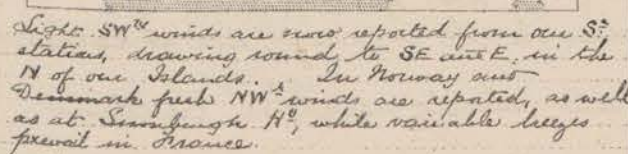 Light SW^ly winds are now reported from our S^n
stations, drawing round to SE and E. in the
N of our Islands. In Norway and
Denmark fresh NW^ly winds are reported, as well
as at Sumburgh H^d, while variable breezes
prevail in France.